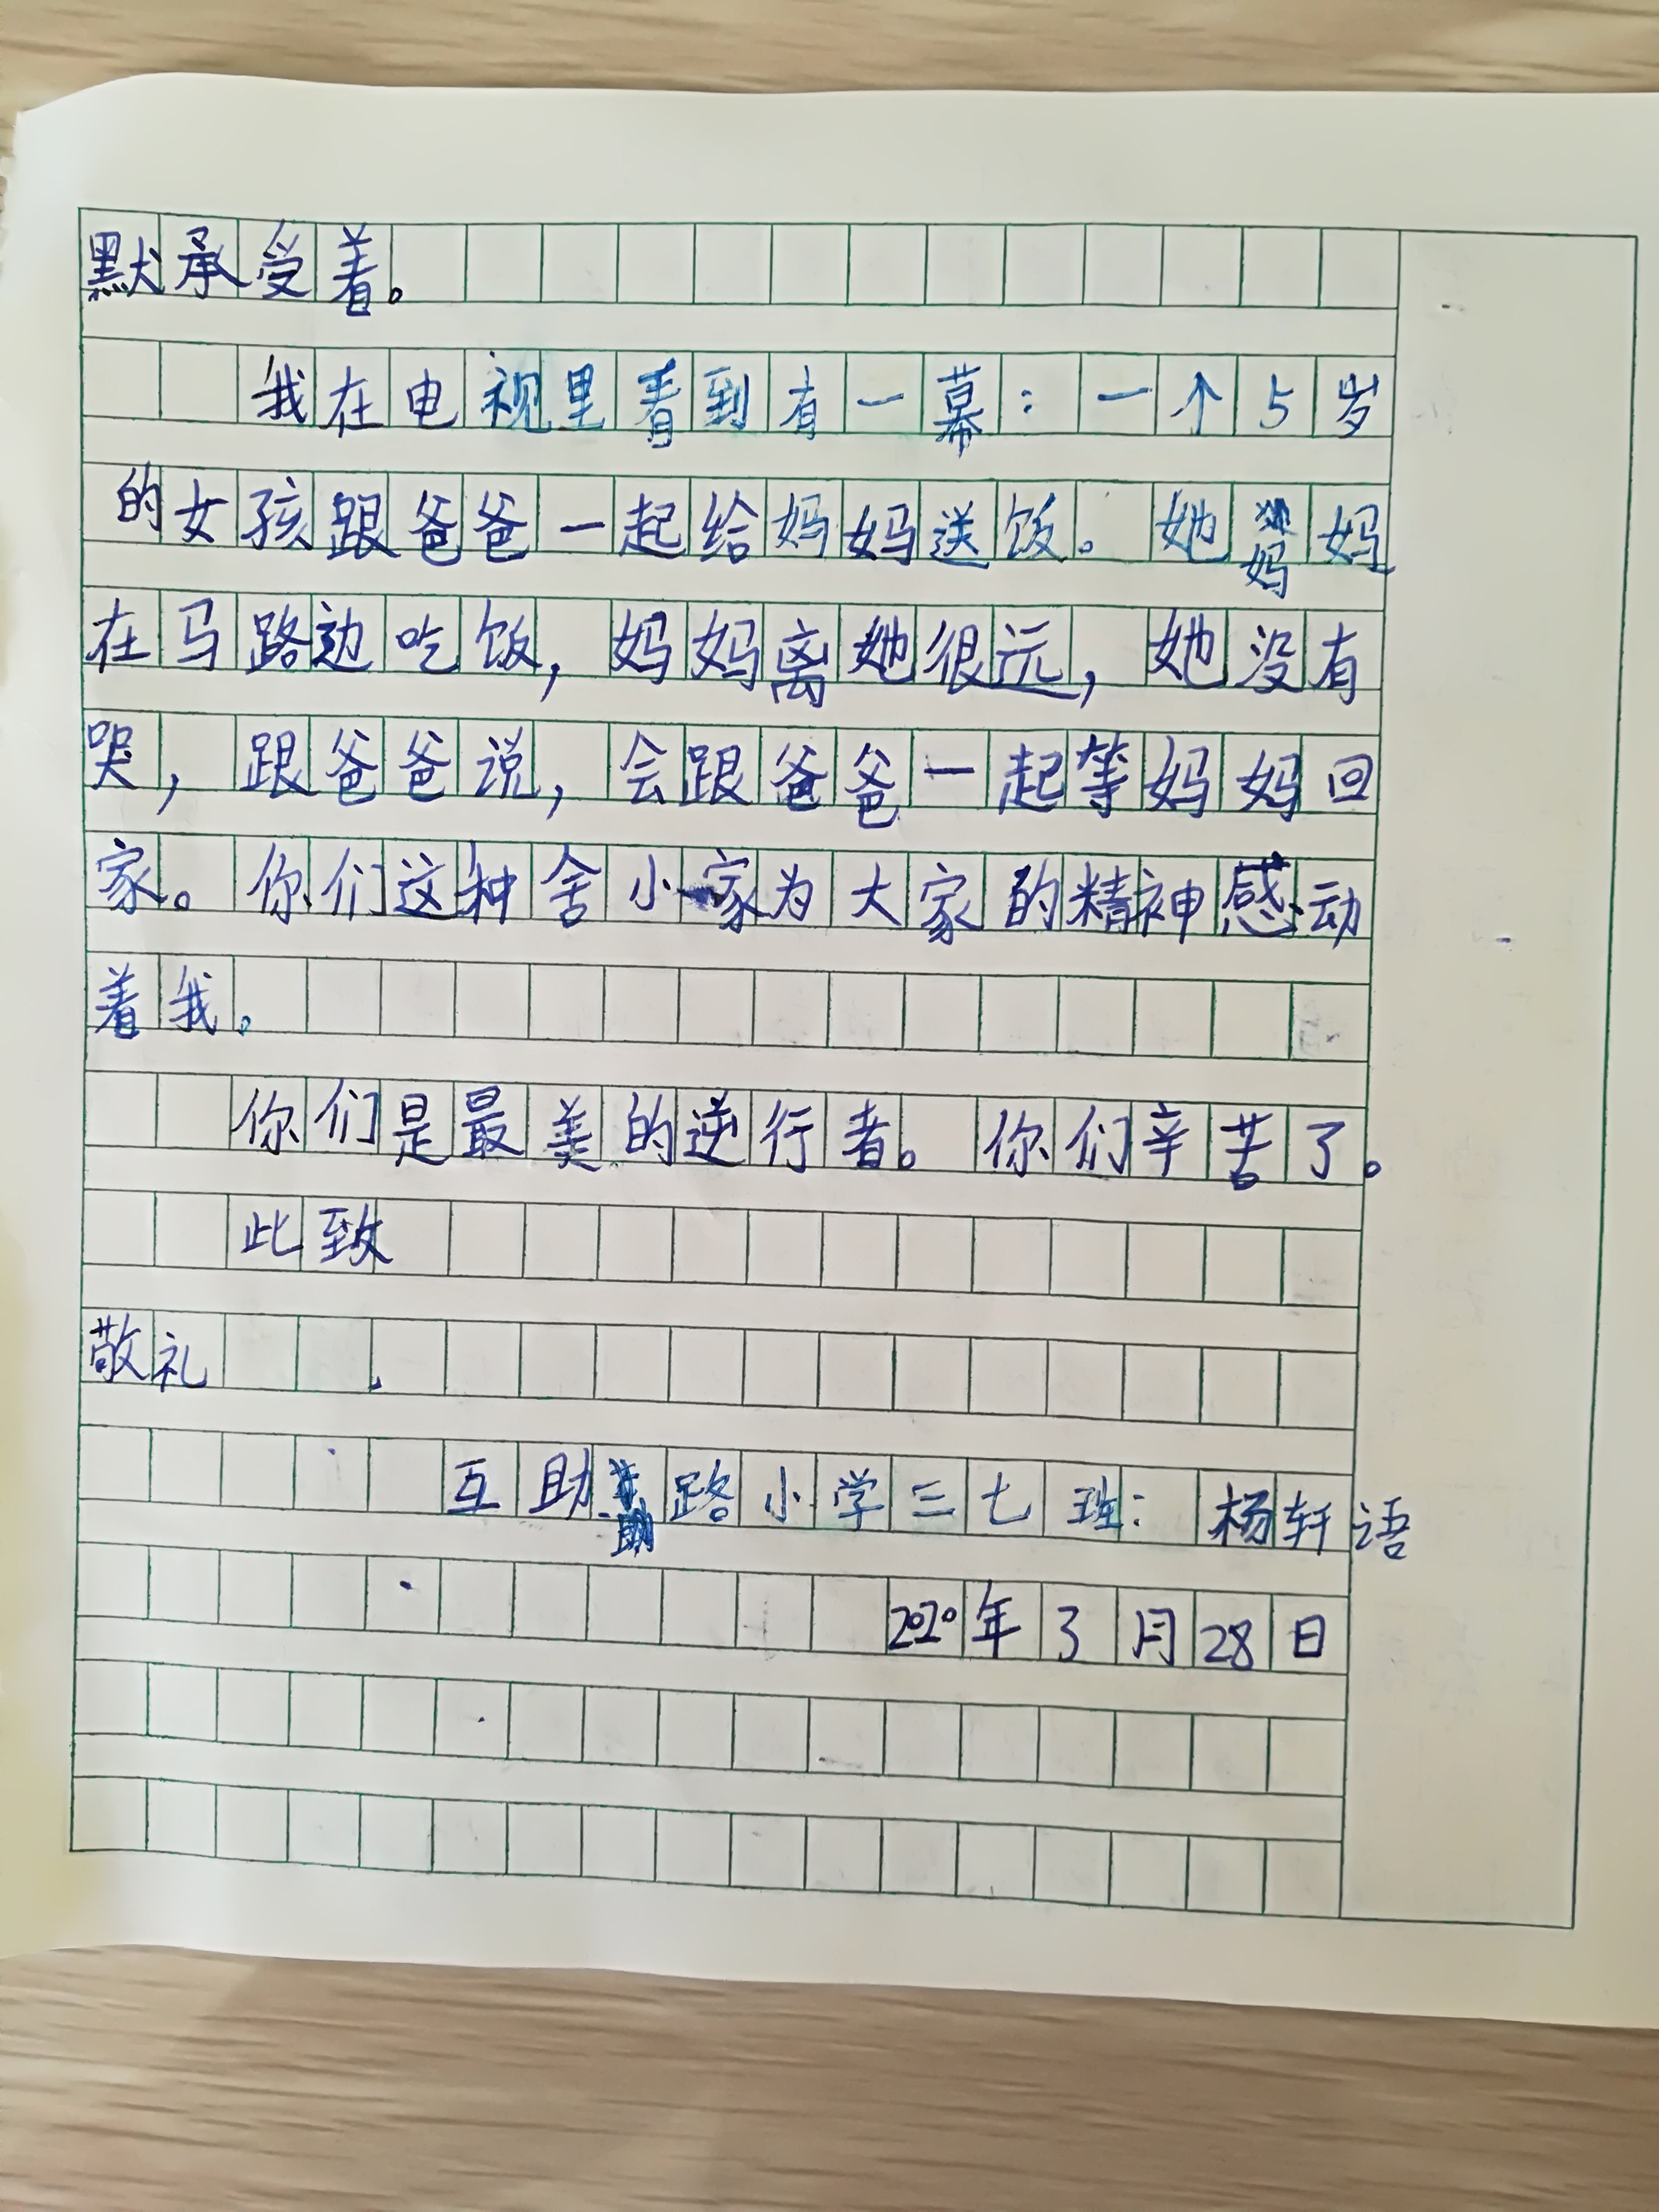 默承受着。
我在电视里看到有一幕：一个5岁
的女孩跟爸爸一起给妈妈送饭。她妈妈
在马路边吃饭，妈妈离她很远，她没有
哭，跟爸爸说，会跟爸爸一起等妈妈回
家。你们这种舍小家为大家的精神感动
着我。
你们是最美的逆行者。你们辛苦了。
此致
敬礼
互助路小学三七班：杨轩语
2020年3月28日